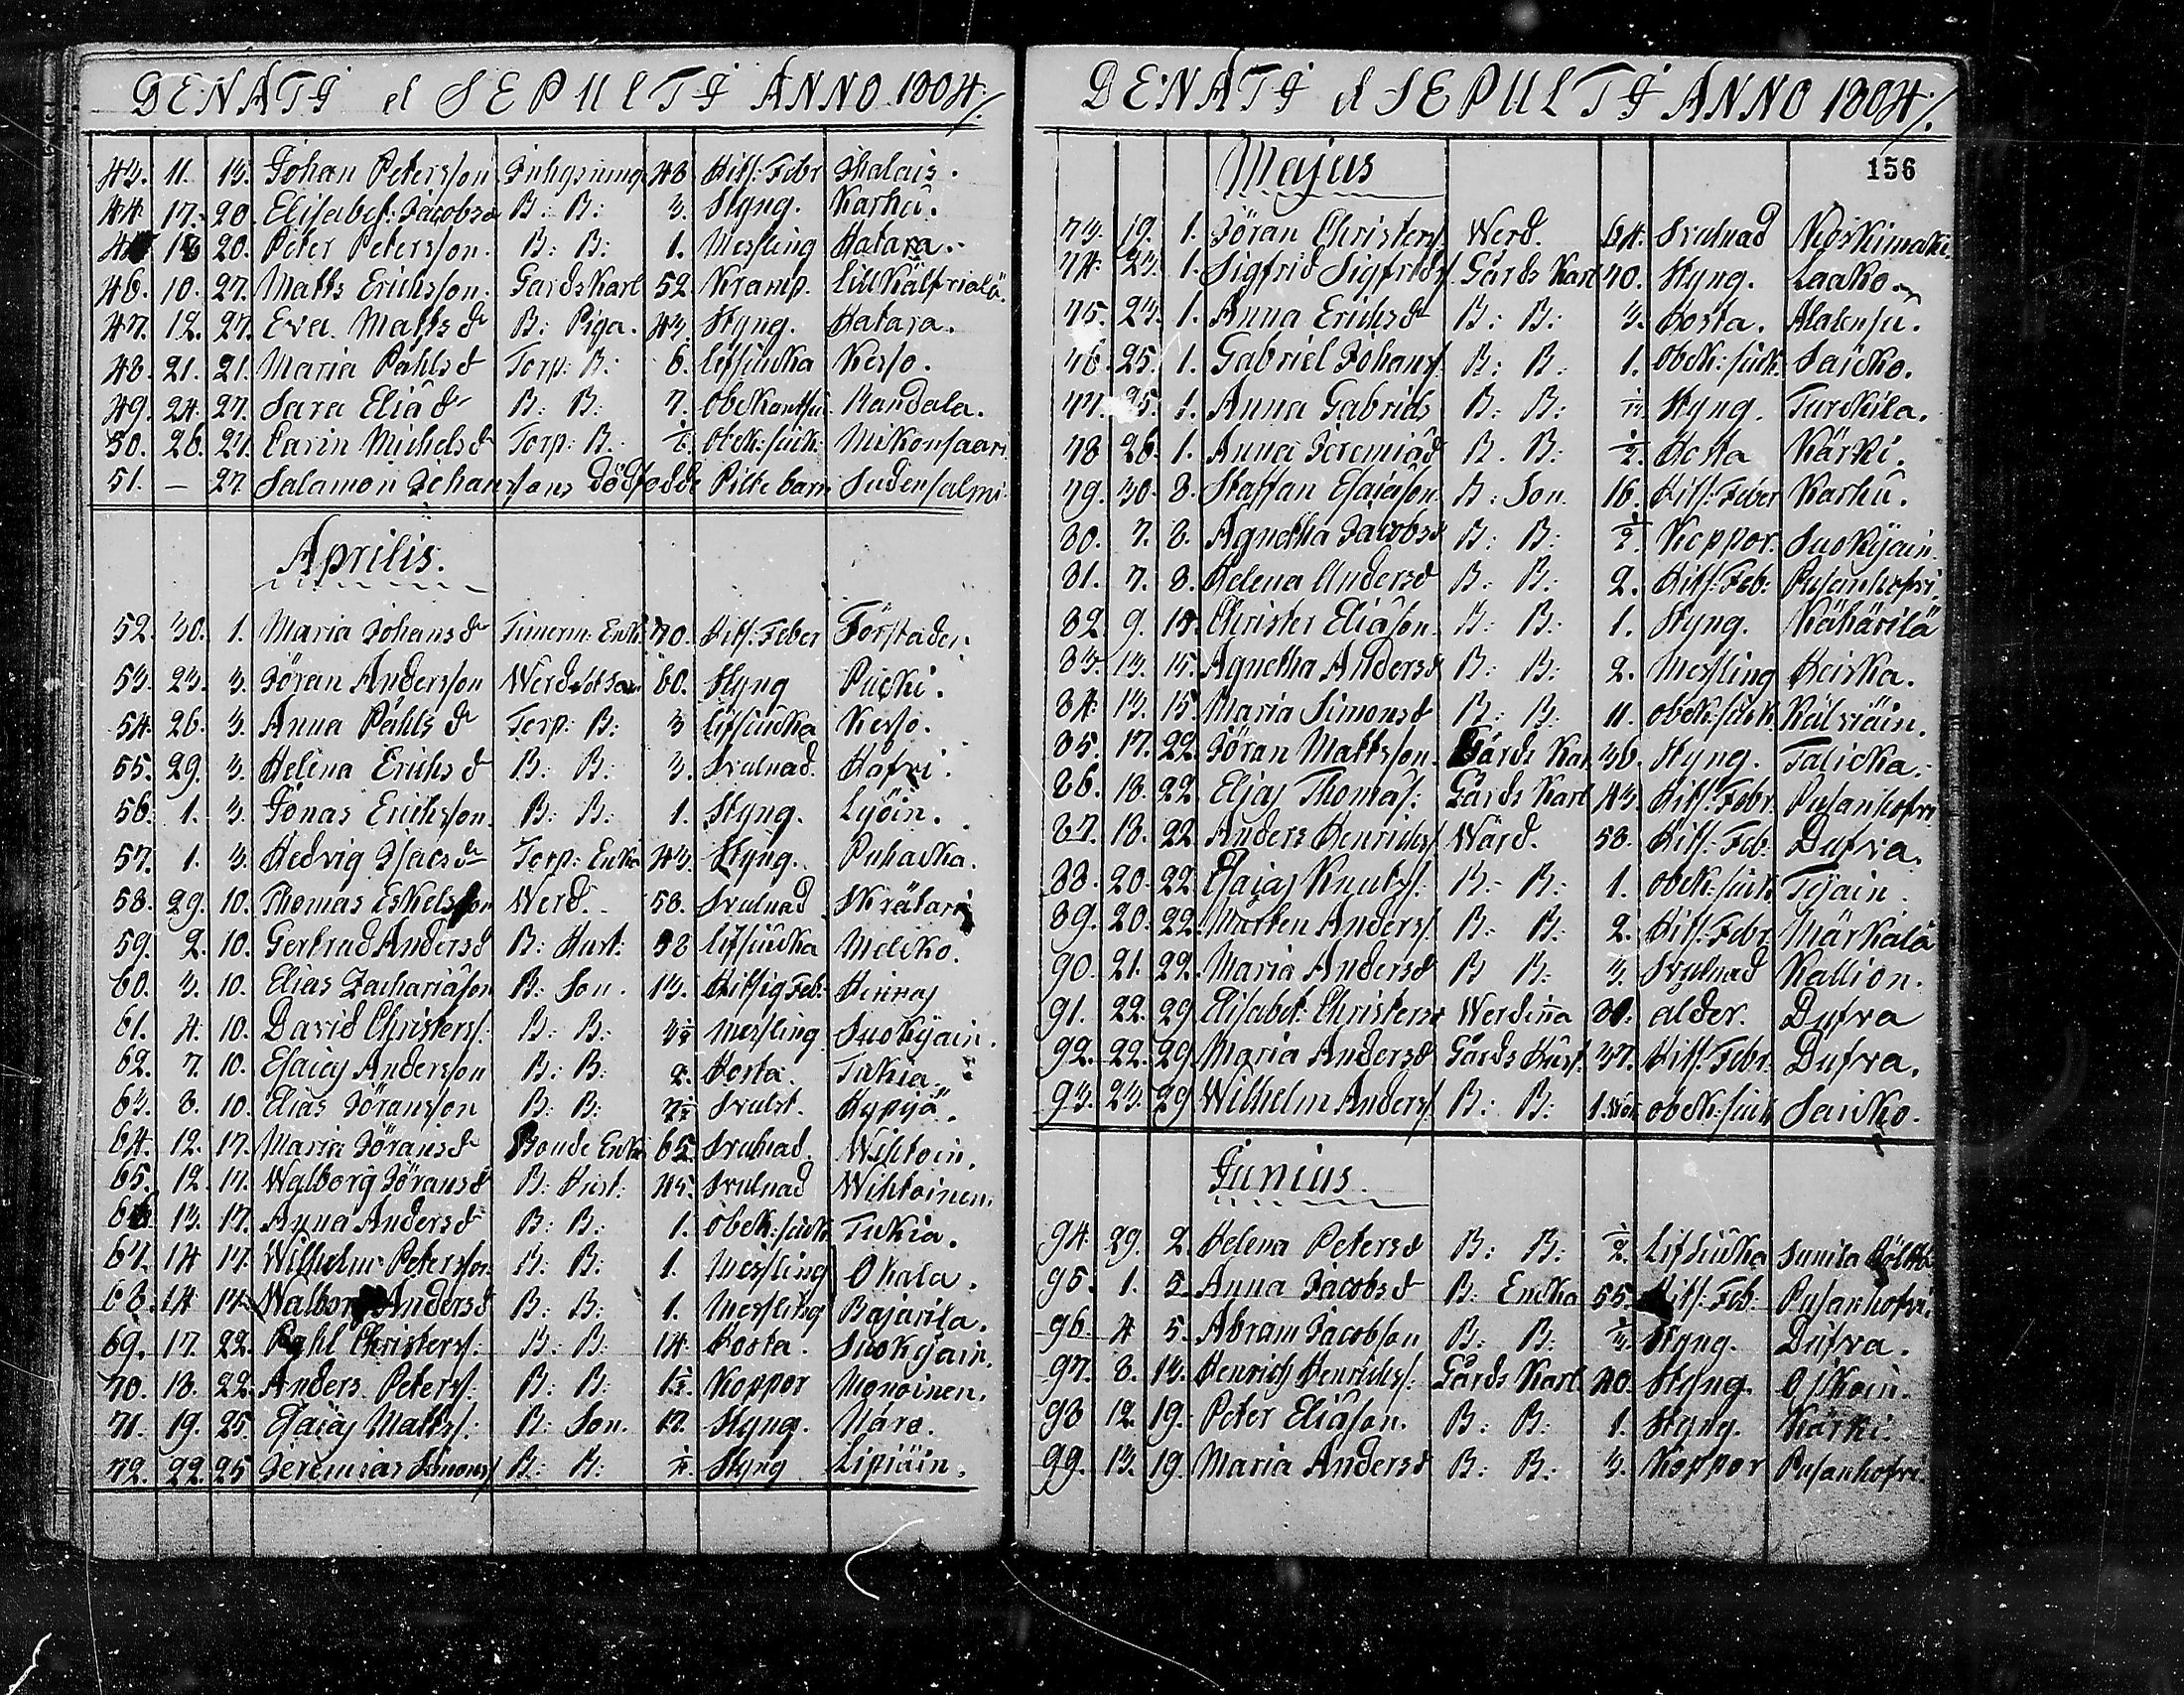 DENATI et SEPULTI ANNO 1804./.
43. 11. 13. Johan Petersson Inhysning 48 Hits: Febr Thalais.
44 17. 20. Elisabet: Jacobsd B: B: 3. Styng. Karhu.
18 20. Peter Petersson. B: B: 1. Messling Hatara.
46. 10. 27. Matts Erichsson. Gårds Karl 52. Kramp. Lill Kälfviälä.
47. 12. 27. Eva Matts dr B: Piga. 43. Styng. Hatara.
48. 21. 21. Maria Påhls d Torp: B: 6. Lifsiucka Keso.
49. 24. 27. Sara Eliæ dr B: B: 7. Obekant sju. Randala.
50. 26. 27. Carin Michels d Torp: B: Obek: siuk: Mikonsaari.
51. — 27. Salamon Johanssons dödfödde Pilte barn Sudensalmi.
Aprilis.
52. 30. 1. Maria Johans dr Timerm: Enk: 70. Hits: Feber Förstaden.
53. 23. 3. Jöran Andersson Werd 60. Styng Pucki.
54. 26. 3. Anna Påhls dr Torp: B: 3 Lifsiucka Keso.
55. 29. 3. Helena Erichs d B: B: 3. Svulnad. Håfvi.
56. 1. 3. Jonas Erichsson. B: B: 1. Styng. Lyöin.
57. 1. 3. Hedvig Isacs dr Torp: Enka 43. Styng. Puhacka.
58. 29. 10. Thomas Eskelsson Werd. 58. Svulnad Skrätari
59. 2. 10. Gertrud Andersd B: Hust: 58 Lifsiucka Melcko.
60. 3. 10. Elias Zachariæson B: Son. 13. Hitsig Feb: Hinnas
61. 4. 10. David Christers/: B: B: Messling Suokyäin.
62. 7. 10. Esaias Andersson B: B: 2. Hosta. Tukia.
63. 8. 10. Elias Jöransson B: B: Svulst. Hypyä.
64. 12. 17. Maria Jöransd Bonde Enka 65 Svulnad. Wihtoin.
65. 12. 17. Walborg Jöransd B: Hust: 45. Svulnad Wihtoinen.
13. 17. Anna Andersd B: B: 1. Obek: siuk Tukia.
67. 14 17. Wilhelm Petersson. B: B: 1. Messling Okala.
68. 14 17. Walborg Andersd B: B: 1. Messling Bajarila.
69. 17. 22. Påhl Christers/: B: B: 14. Hosta. Suokyäin.
70. 18. 22. Anders Peters/: B: B: Koppor Monoinen.
71. 19. 25. Esaias Matts/: B: Son. 17. Styng. Nara.
72. 22. 25 Jeremias Simons/ B: B: Styng Lipiäin.
DENATI et SEPULTI ANNO 1804/.
156
Majus
73. 19. 1. Jöran Christers/. Werd. 64. Svulnad Koskimaki.
74. 23. 1. Sigfrid Sigfrids/. Gårds Karl 70. Styng. Laako.
75. 23. 1. Anna Erichsd B: B: 3. Hosta. Alalensu.
76. 25. 1. Gabriel Johans/. B: B: 1. Obek: siuk. Saicko.
77. 25. 1. Anna Gabriels B: B: Styng. Turckila.
78 26. 1. Anna Jeremiæd B. B: ½. Hosta Kärki.
79. 30. 8. Staffan Esaiæson. B: Son. 16. Hits: Feber Karhu.
80. 7. 8. Agnetha Jacobsd B: B: ½. Koppor. Suokyäin.
81. 7. 8. Helena Andersd B: B: 2. Hits: Feb: Pusanhofvi.
82. 9. 15. Christer Eliæson. B: B: 1. Styng. Kähärilä
83. 13. 15. Agnetha Andersd B: B: 2. Messling Heiska.
84. 13. 15. Maria Simonsd B: B: 11. Obek: siuk Kälviäin.
85. 17. 22. Jöran Mattsson. Gårds Karl 36. Styng. Talicka.
86. 18. 22 Elias Thomas/: Gårds Karl 43. Hits: Febr. Pusanhofvi.
87. 18. 22 Anders Henrichs/ Wärd. 58. Hits: Feb: Dufva.
88. 20. 22 Esaias Knuts/: B: B: 1. Obek: siuk Tyjäin.
89. 20. 22. Mårten Anders/ B: B: 2. Hits: Febr. Märkälä
90. 21. 22. Maria Andersd B B: 3. Svulnad Kallion.
91. 22. 29. Elisabet: Christersd Werdinna 80. alder. Dufva
92. 22. 29. Maria Andersd Gårds Hust: 37. Hits: Febr. Dufva.
93. 23. 29 Wilhelm Anders/ B: B: 1. Wek Obek: siuk Saicko.
Junius.
94. 29. 2. Helena Petersd B: B: ½. Lifsiucka Sunila
95. 1. 5. Anna Jacobsd B: Encka 55. Hits: Feb: Pusanhofvi.
96. 4 5. Abram Jacobson B: B: Styng. Dufva.
97. 8. 13. Henrich Henrichs/: Gårds Karl 40. Styng. Oikoin.
98 12. 19. Peter Eliæson. B: B: 1. Styng. Kärki.
99. 13. 19. Maria Andersd B: B: 3. Koppor Pusanhofvi.